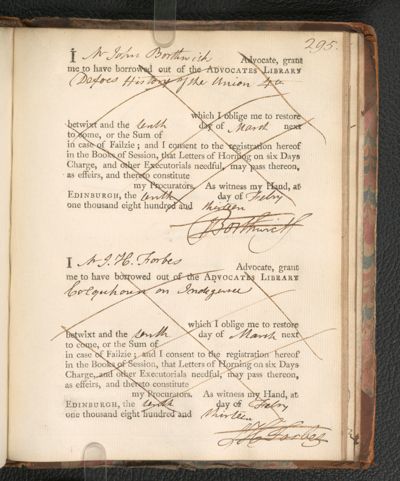 295.
I Mr John Borthwick Advocate, grant
me to have borrowed out of the ADVOCATES LIBRARY
Defoes History of the Union 4to
which I oblige me to restore
betwixt and the tenth day of March next
to come, or the Sum of
in case of Failzie; and I consent to the registration hereof
in the Books of Session, that Letters of Horning on six Days
Charge, and other Executorials needful, may pass thereon,
as effeirs, and thereto constitute
my Procurators. As witness my Hand, at
EDINBURGH, the tenth day of Febry
one thousand eight hundred and thirteen
J Borthwick
I Mr J. H. Forbes Advocate, grant
me to have borrowed out of the ADVOCATES LIBRARY
Colquhoun on Indigence
which I oblige me to restore
betwixt and the tenth day of March next
to come, or the Sum of
in case of Failzie; and I consent to the registration hereof
in the Books of Session, that Letters of Horning on six Days
Charge, and other Executorials needful, may pass thereon,
as effeirs, and thereto constitute
my Procurators. As witness my Hand, at
EDINBURGH, the tenth day of Febry
one thousand eight hundred and thirteen
J H Forbes